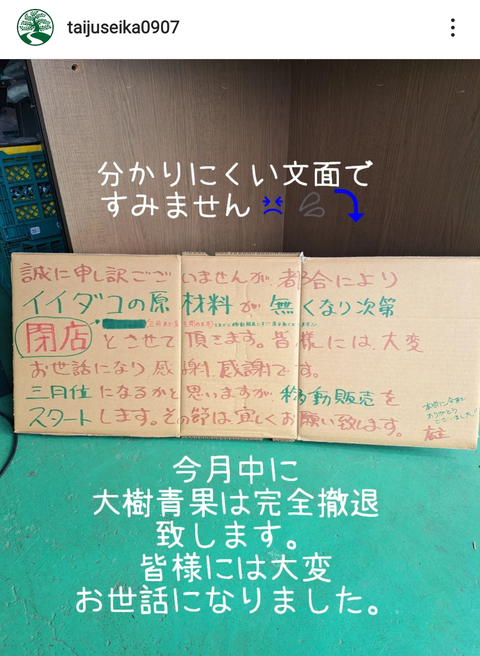 taijuseika0907
分かりにくい文面で
すみません
誠に申し訳ございませんが、都合により
イイダコの原材料が無くなり次第
閉店とさせて頂きます。皆様には、大変
お世話になり感謝、感謝です。
三月位になるかと思いますが、移動販売を
スタートします。その節は宜しくお願い致します。
本当に今まで
ありがとう
ございました!
店主
今月中に
大樹青果は完全撤退
致します。
皆様には大変
お世話になりました。